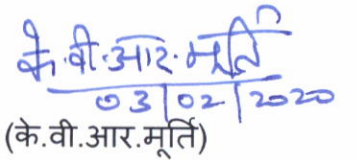 के.वी.आर.मूर्ति
03/02/2020
(के.वी.आर.मूर्ति)